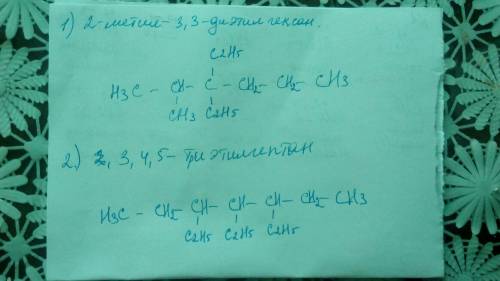 1) 2-метил-3,3-диэтил гексан.
C2H5
H3C - CH - C - CH2 - CH2 - CH3
CH3 C2H5
2.) 3, 4, 5- триэтилгептан
H3C - CH2 - CH - CH - CH - CH2 - CH3
C2H5 C2H5 C2H5